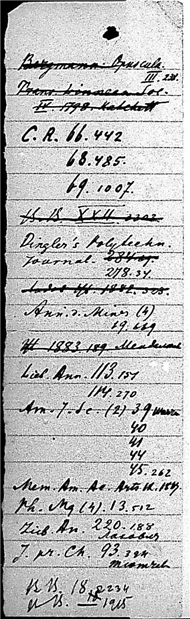 Bergmann. Opuscula.
III. 231.
Trans. Linnean Soc.
IV. 1798. Hatchett
C. R. 66.442
68.485.
69.1007.
XXII
Dingler's Polytechn.
Journal.
278.34.
Ann. d. Mines (4)
19.669
1883 189 Mendeleef
Lieb. Ann. 113.151
114.270
Am. J. Sc. (2) 39
40
41
44
45.262
Mem. Am. Ac. Arts
Ph. Mg (4). 13.512
Lieb. An. 220.188
J. pr. Ch. 93.324
B. B. 18.2234
B. 18 1915